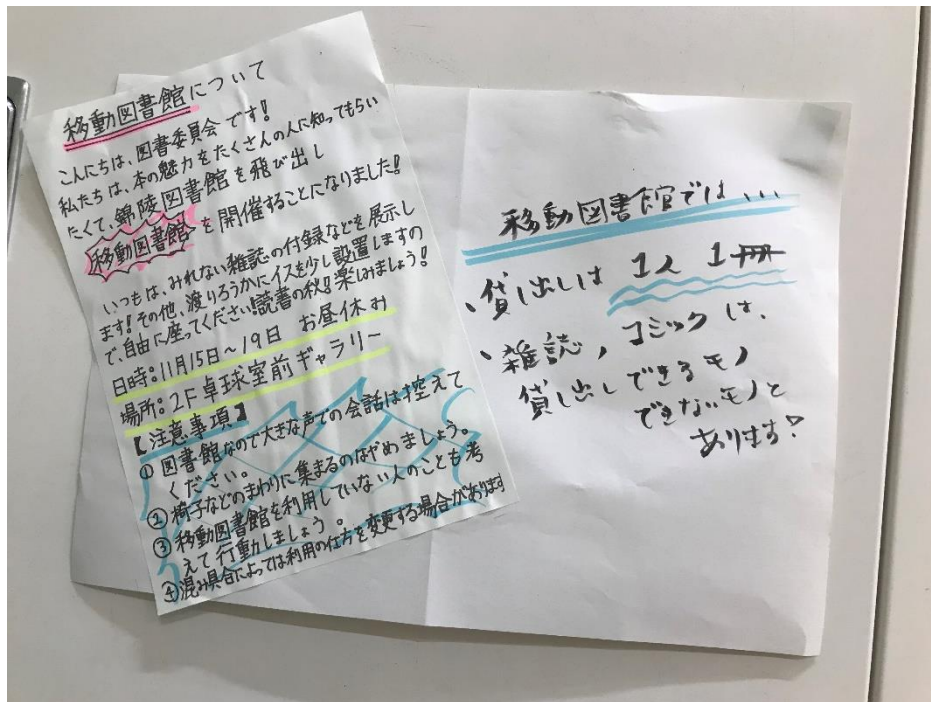 移動図書館について
こんにちは、図書委員会です!
私たちは、本の魅力をたくさんの人に知ってもらい
たくて、錦陵図書館を飛び出し
移動図書館を開催することになりました!
いつもは、みれない雑誌の付録などを展示し
ます!その他、渡りろうかにイスを少し設置しますの
で、自由に座ってください!読書の秋!!楽しみましょう!
日時:11月15日~19日 お昼休み
場所:2F卓球室前ギャラリー
【注意事項】
① 図書館なので大きな声での会話は控えて
ください。
② 椅子などのまわりに集まるのはやめましょう。
③ 移動図書館を利用していない人のことも考
えて行動しましょう。
④ 混み具合によっては利用の仕方を変更する場合があります
移動図書館では...
、貸し出しは 1人 1冊
、雑誌、コミックは、
貸し出しできるモノ
できないモノと
あります!